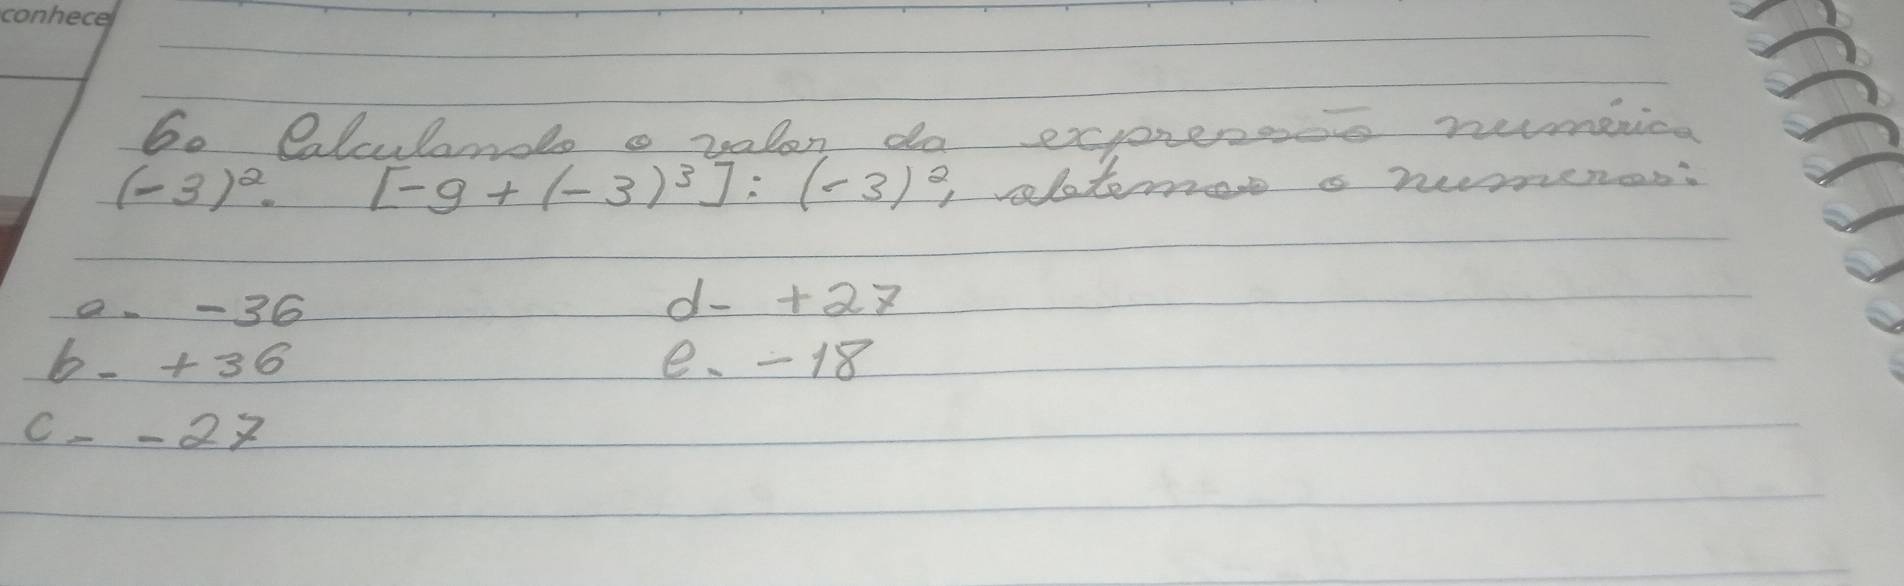 conhece
6. Calculando o valor da expressão numérica
(-3)². [-9 + (-3)³] : (-3)², obtemos o numeros:
a. -36 d- +27
b- +36 e. -18
c- -27